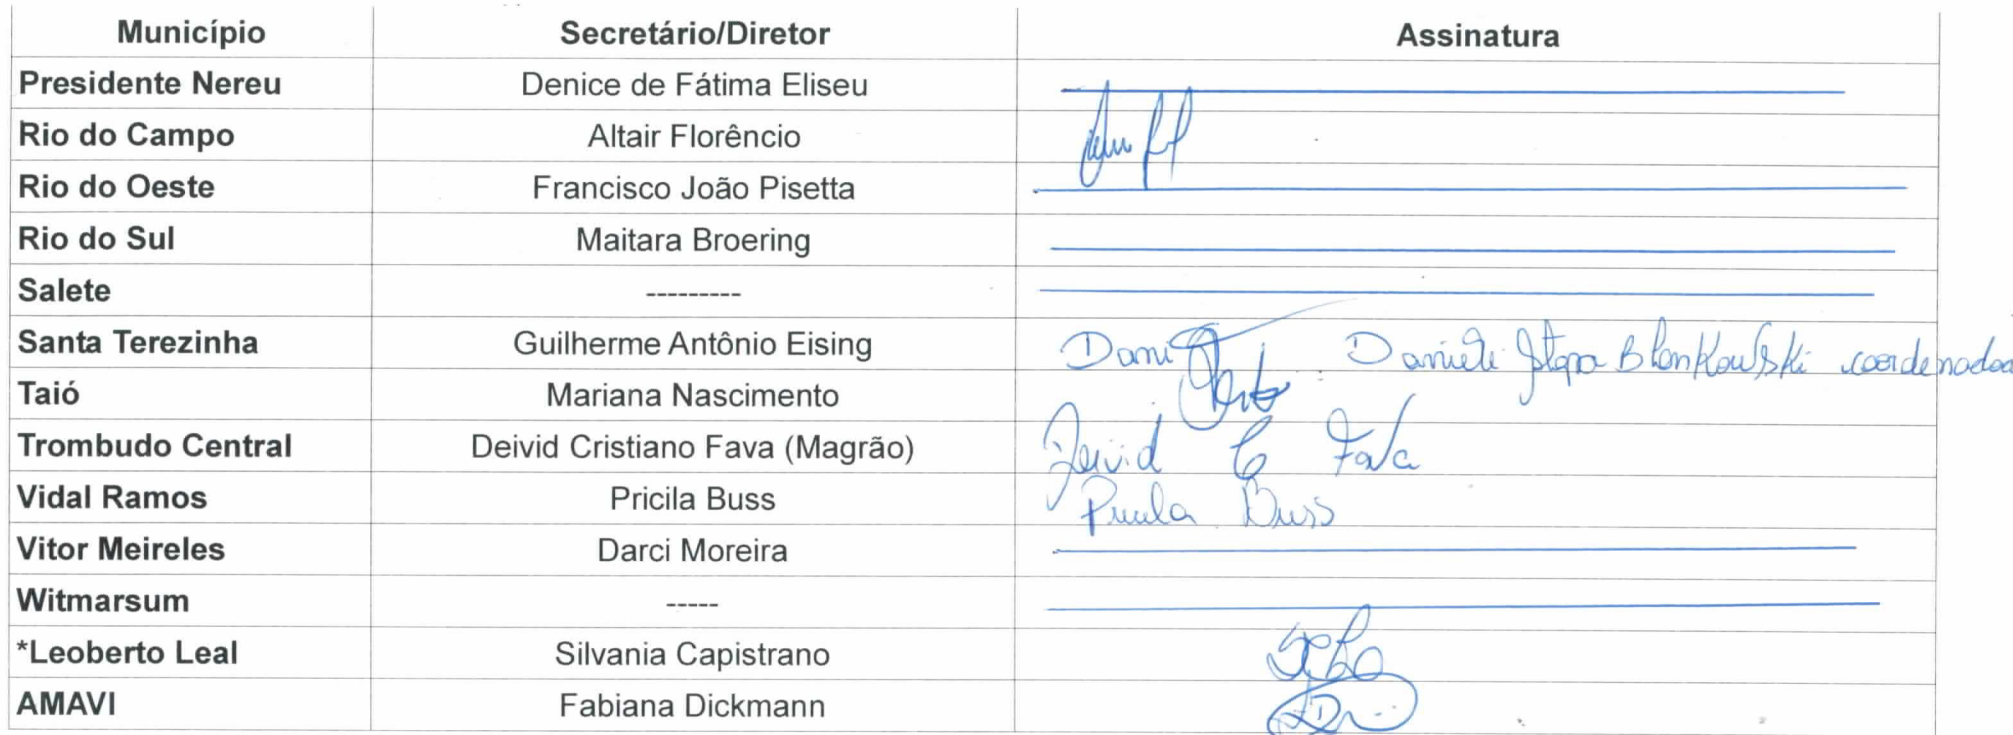 Município Secretário/Diretor Assinatura
Presidente Nereu Denice de Fátima Eliseu
Rio do Campo Altair Florêncio
Rio do Oeste Francisco João Pisetta
Rio do Sul Maitara Broering
Salete ---------
Santa Terezinha Guilherme Antônio Eising Dani Daniele Blonkowski coordenadora
Taió Mariana Nascimento
Trombudo Central Deivid Cristiano Fava (Magrão) Deivid C Fava
Vidal Ramos Pricila Buss Pricila Buss
Vitor Meireles Darci Moreira
Witmarsum -----
*Leoberto Leal Silvania Capistrano
AMAVI Fabiana Dickmann